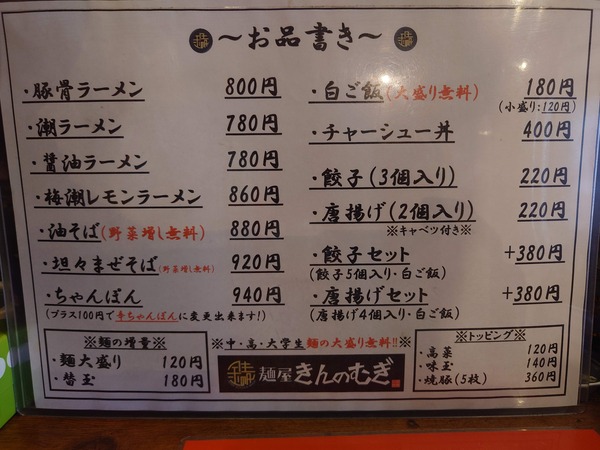 〜お品書き〜
・豚骨ラーメン 800円
・潮ラーメン 780円
・醤油ラーメン 780円
・梅潮レモンラーメン 860円
・油そば(野菜増し無料) 880円
・坦々まぜそば(野菜増し無料) 920円
・ちゃんぽん 940円
(プラス100円で辛ちゃんぽんに変更出来ます!)
・白ご飯(大盛り無料) 180円
(小盛り:120円)
・チャーシュー丼 400円
・餃子(3個入り) 220円
・唐揚げ(2個入り) 220円
※キャベツ付き※
・餃子セット +380円
(餃子5個入り・白ご飯)
・唐揚げセット +380円
(唐揚げ4個入り・白ご飯)
※麺の増量※
・麺大盛り 120円
・替玉 180円
※中・高・大学生麺の大盛り無料!!※
麺屋きんのむぎ
※トッピング※
・高菜 120円
・味玉 140円
・焼豚(5枚) 360円